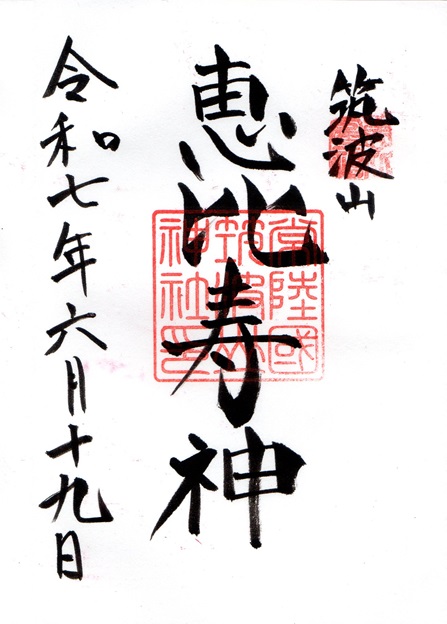 筑波山
恵比寿神
常陸國
筑波山
神社印
令和七年六月十九日